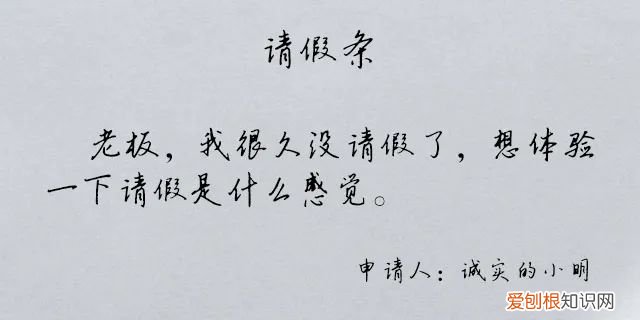 请假条
老板，我很久没请假了，想体验
一下请假是什么感觉。
申请人：诚实的小明
爱刨根知识网